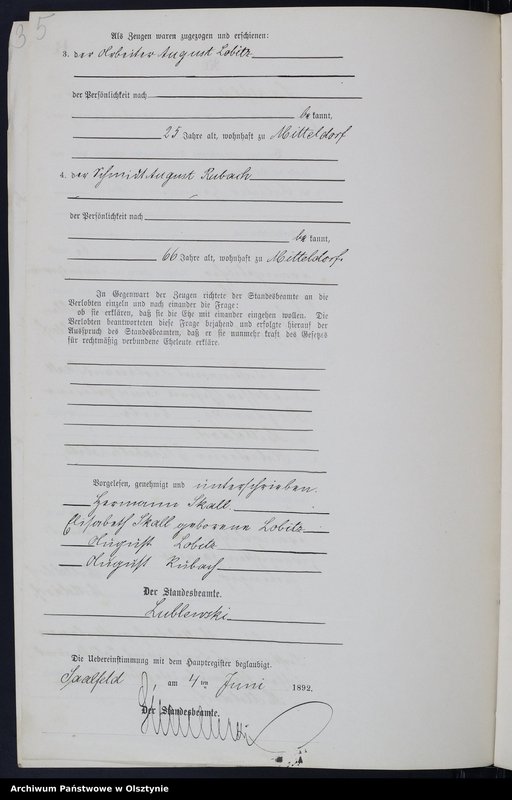 35
Als Zeugen waren zugezogen und erschienen:
3. der Arbeiter August Lobitz
der Persönlichkeit nach
be kannt,
25 Jahre alt, wohnhaft zu Mitteldorf
4. der Schmidt August Rubach
der Persönlichkeit nach
be kannt,
66 Jahre alt, wohnhaft zu Mitteldorf.
In Gegenwart der Zeugen richtete der Standesbeamte an die
Verlobten einzeln und nach einander die Frage:
ob sie erklären, daß sie die Ehe mit einander eingehen wollen. Die
Verlobten beantworteten diese Frage bejahend und erfolgte hierauf der
Ausspruch des Standesbeamten, daß er sie nunmehr kraft des Gesetzes
für rechtmäßig verbundene Eheleute erkläre.
Vorgelesen, genehmigt und unterschrieben.
Hermann Skall
Elisabeth Skall geborene Lobitz
August Lobitz
August Rubach
Der Standesbeamte.
Lublewski
Die Uebereinstimmung mit dem Hauptregister beglaubigt.
Saalfeld am 4 ten Juni 1892.
Der Standesbeamte.
Archiwum Państwowe w Olsztynie